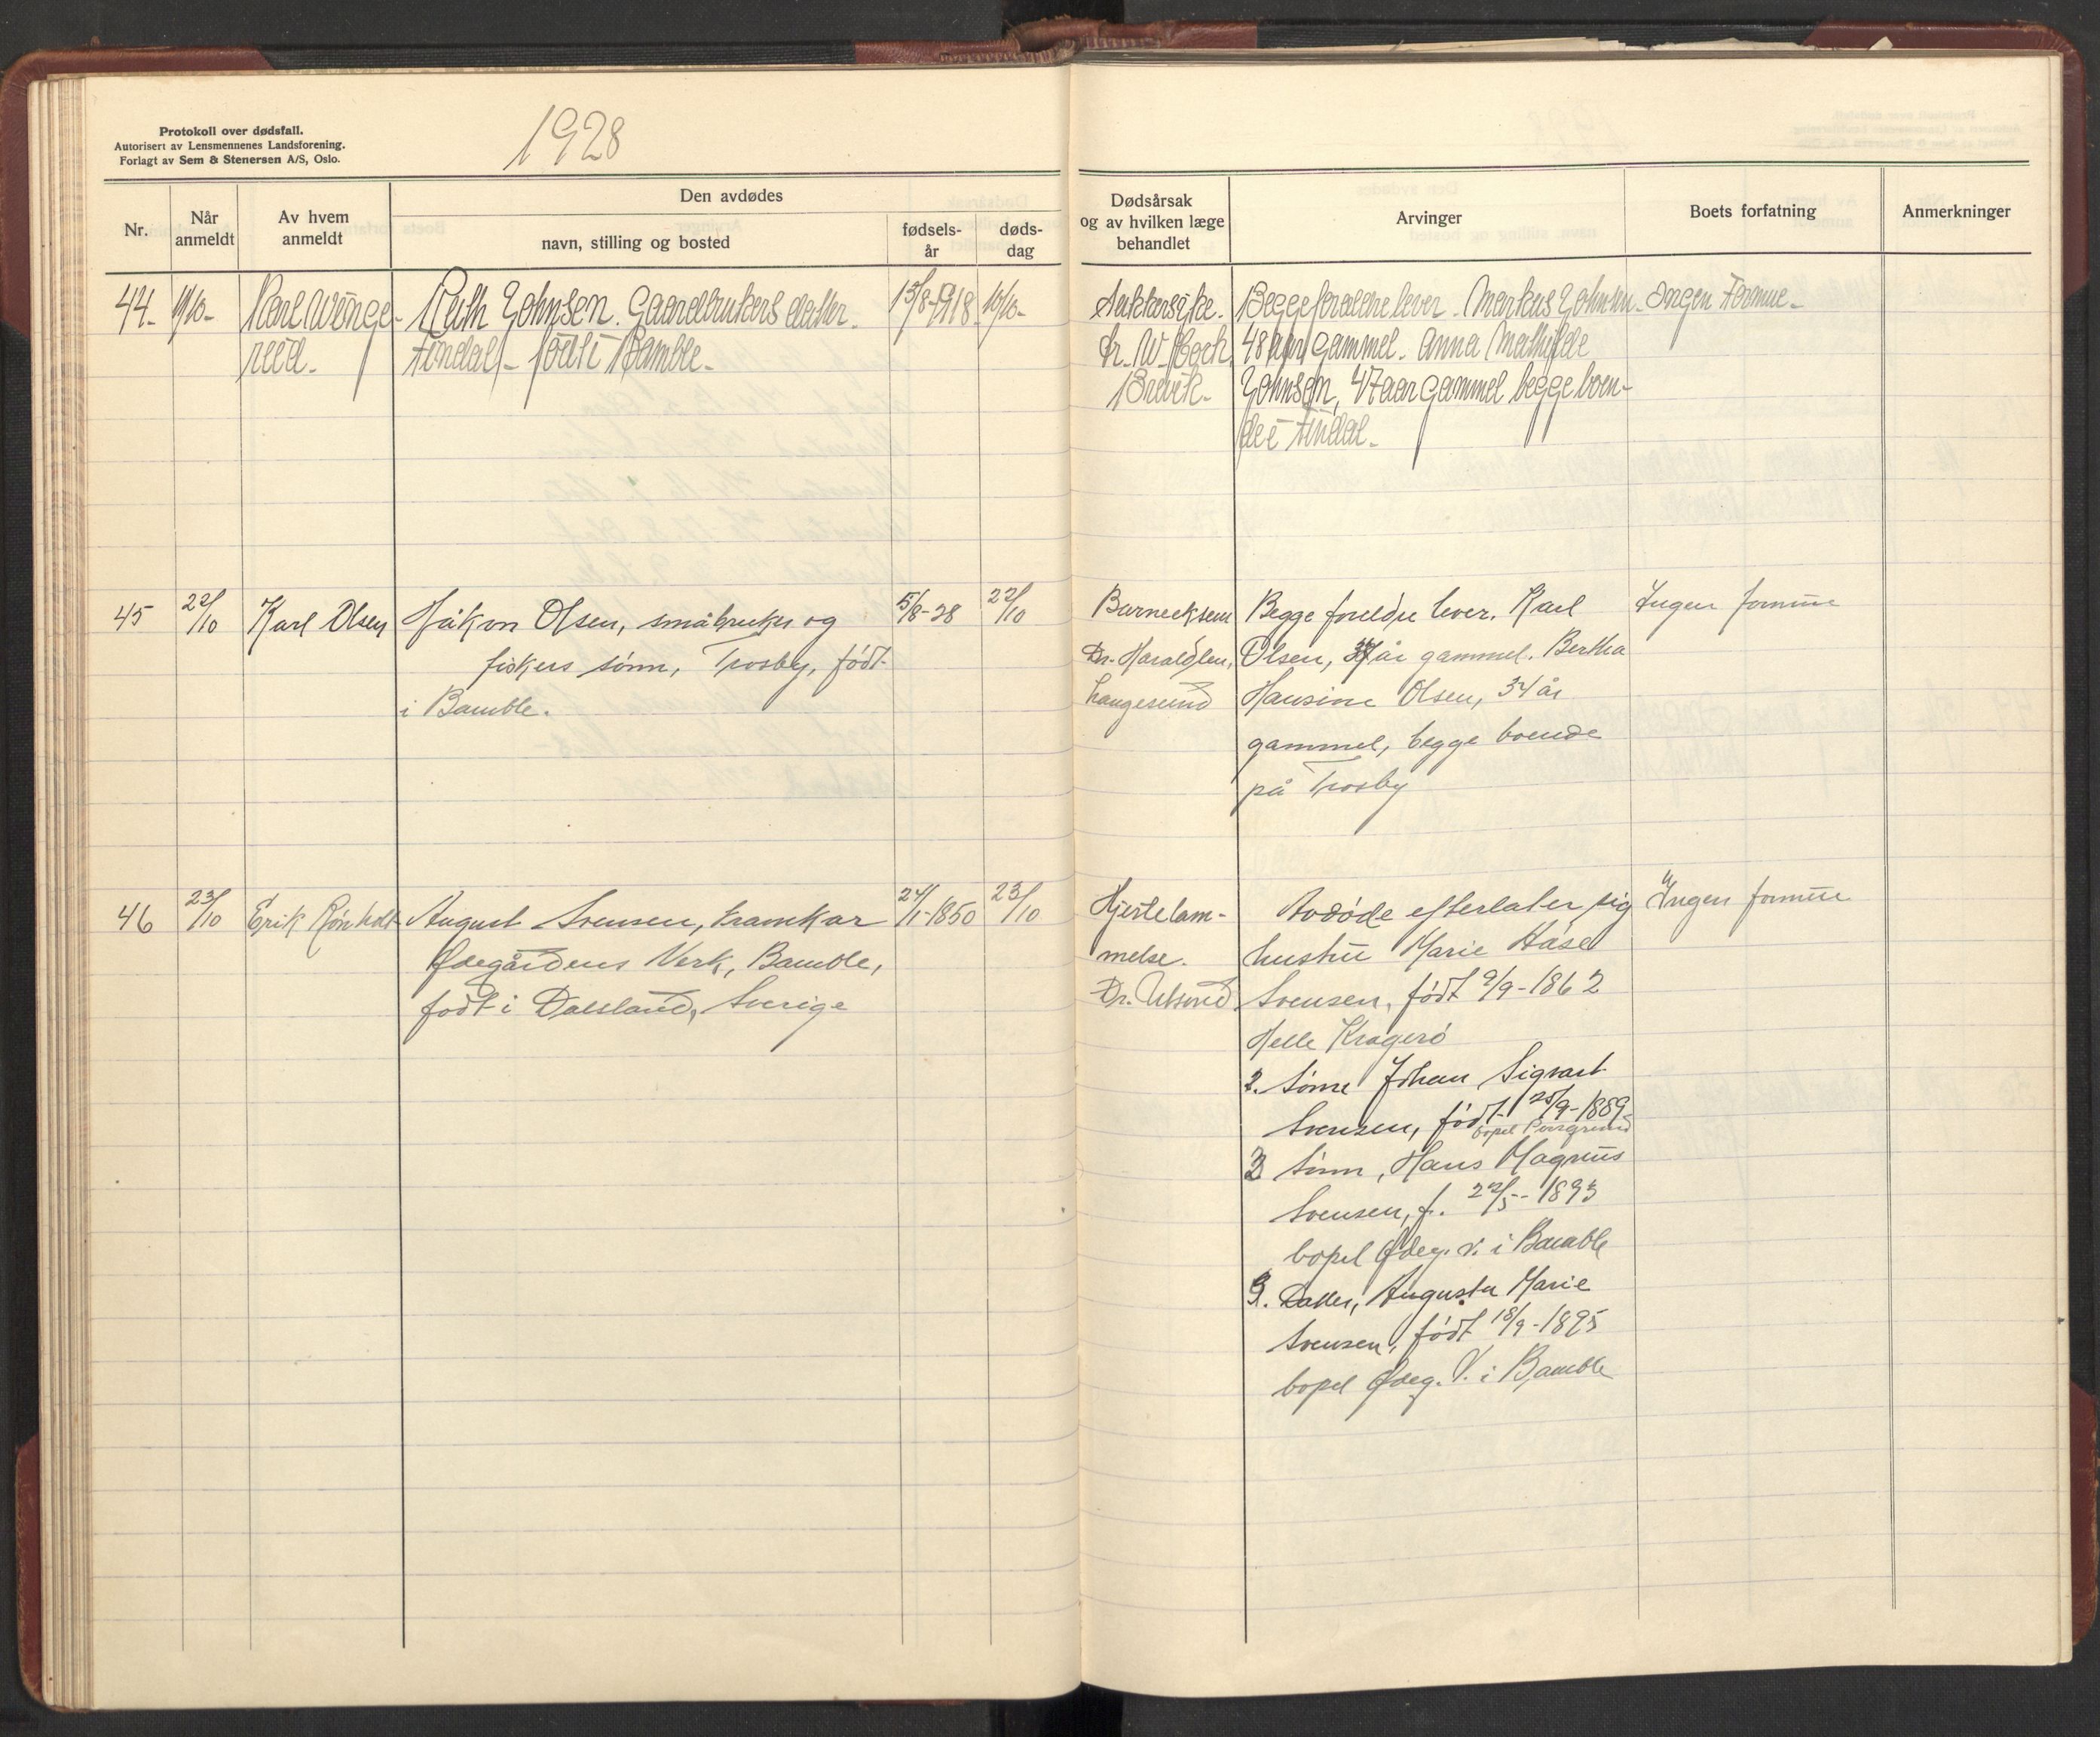 Protokoll over dødsfall.
Autorisert av Lensmennenes Landsforening.
Forlagt av Sem & Stenersen A/S, Oslo.
1928
Nr.
Når
anmeldt
Av hvem
anmeldt
Den avdødes
navn, stilling og bosted
fødsels-
år
døds-
dag
Dødsårsak
og av hvilken læge
behandlet
Arvinger
Boets forfatning
Anmerkninger
44-
11/10-
Karl Winge-
reid-
Ruth Johnsen. Gaardbrukers datter.
Findal- født i Bamble-
15/8-1918
10/10-
Sukkersyke.
Dr. W. Hoch
Brevik-
Begge foreldre lever. Markus Johnsen-
48 aar gammel. Anna Mathilde
Johnsen, 47 aar gammel begge boen-
de i Findal-
Ingen Formue-
45
22/10
Karl Olsen
Håkon Olsen, småbruker og
fiskers sønn, Trosby, født
i Bamble.
5/8-28
22/10
Barneeksem
Dr. Haraldsen,
Langesund
Begge foreldre lever. Karl
Olsen, år gammel. Bertha
Hansine Olsen, 34 år
gammel, begge boende
på Trosby
Ingen formue
46
23/10
Erik Rönholt
August Svensen, kramkar
Ødegårdens Verk, Bamble,
født i Dalsland, Sverige
24/1-1850
23/10
Hjertelam-
melse.
Dr.
Avdøde efterlater sig
hustru Marie Håse
Svensen, født 9/9-1862
Helle Kragerö
2. Sönn Johan Sigvart
Svensen, født 25/9-1889
bopel Porsgrund
3 Sönn, Hans Magnus
Svensen, f. 22/5-1893
bopel Ødeg. v. i Bamble
Datter, Augusta Marie
Svensen, født 18/9-1895
bopel Ødeg. V. i Bamble
Ingen formue